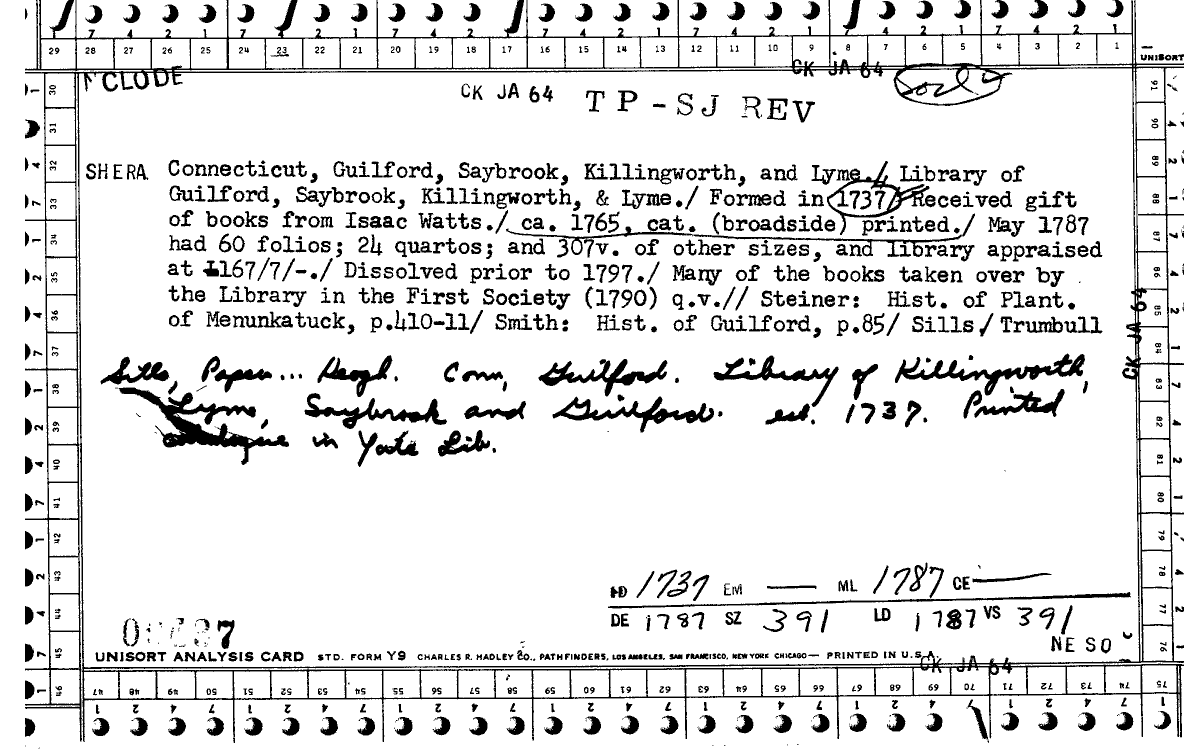 7 4 2 1 7 4 2 1 7 4 2 1 7 4 2 1 7 4 2 1 7 4 2 1 7 4 2 1
29 28 27 26 25 24 23 22 21 20 19 18 17 16 15 14 13 12 11 10 9 8 7 6 5 4 3 2 1
UNISORT
CLODE
CK JA 64
CK JA 64
TP-SJ REV
SHERA Connecticut, Guilford, Saybrook, Killingworth, and Lyme./ Library of
Guilford, Saybrook, Killingworth, & Lyme./ Formed in 1737/ Received gift
of books from Isaac Watts./ ca. 1765, cat. (broadside) printed./ May 1787
had 60 folios; 24 quartos; and 307v. of other sizes, and library appraised
at £167/7/-./ Dissolved prior to 1797./ Many of the books taken over by
the Library in the First Society (1790) q.v.// Steiner: Hist. of Plant.
of Menunkatuck, p.410-11/ Smith: Hist. of Guilford, p.85/ Sills/ Trumbull
CK JA 64
Sills, Papers... Geogh. Conn, Guilford. Library of Killingworth,
Lyme, Saybrook and Guilford. est. 1737. Printed
catalogue in Yale Lib.
1737 EM — ML 1787 CE —
DE 1787 SZ 391 LD 1787 VS 391
NE SO
UNISORT ANALYSIS CARD STD. FORM Y9 CHARLES R. HADLEY CO., PATHFINDERS, LOS ANGELES, SAN FRANCISCO, NEW YORK CHICAGO— PRINTED IN U.S.A.
CK JA 64
30 31 32 33 34 35 36 37 38 39 40 41 42 43 44 45 46
91 90 89 88 87 86 85 84 83 82 81 80 79 78 77 76 75
47 48 49 50 51 52 53 54 55 56 57 58 59 60 61 62 63 64 65 66 67 68 69 70 71 72 73 74